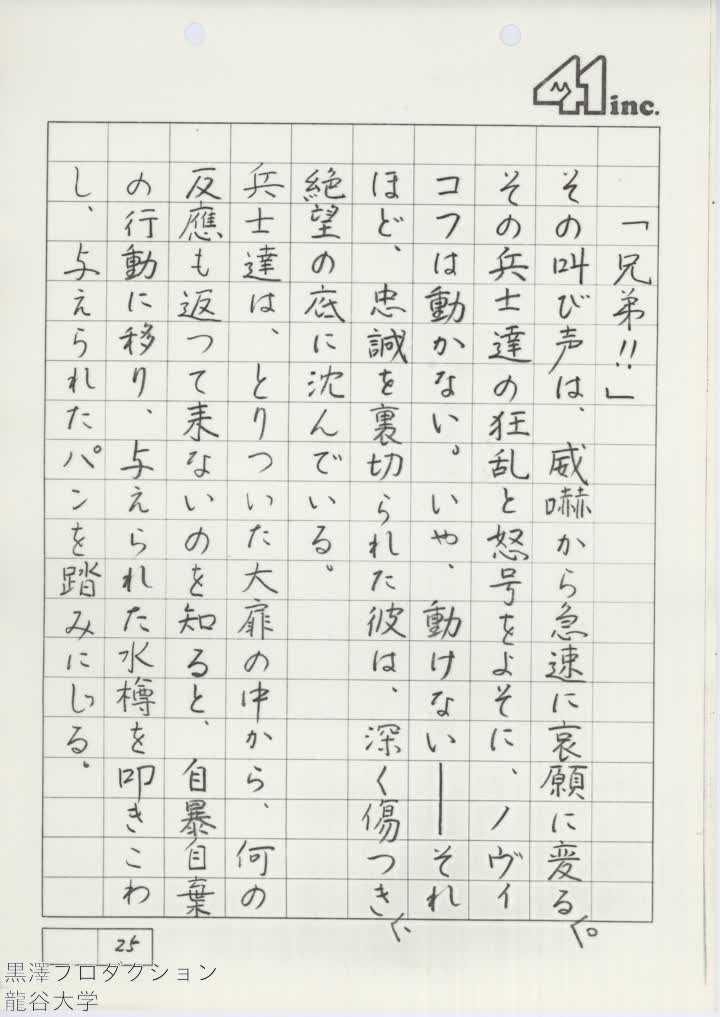 41 inc.
「兄弟!!」
その叫び声は、威嚇から急速に哀願に変る。
その兵士達の狂乱と怒号をよそに、ノヴイ
コフは動かない。いや、動けない――それ
ほど、忠誠を裏切られた彼は、深く傷つき、
絶望の底に沈んでいる。
兵士達は、とりついた大扉の中から、何の
反應も返つて来ないのを知ると、自暴自棄
の行動に移り、与えられた水樽を叩きこわ
し、与えられたパンを踏みにじる。
25
黒澤プロダクション
龍谷大学